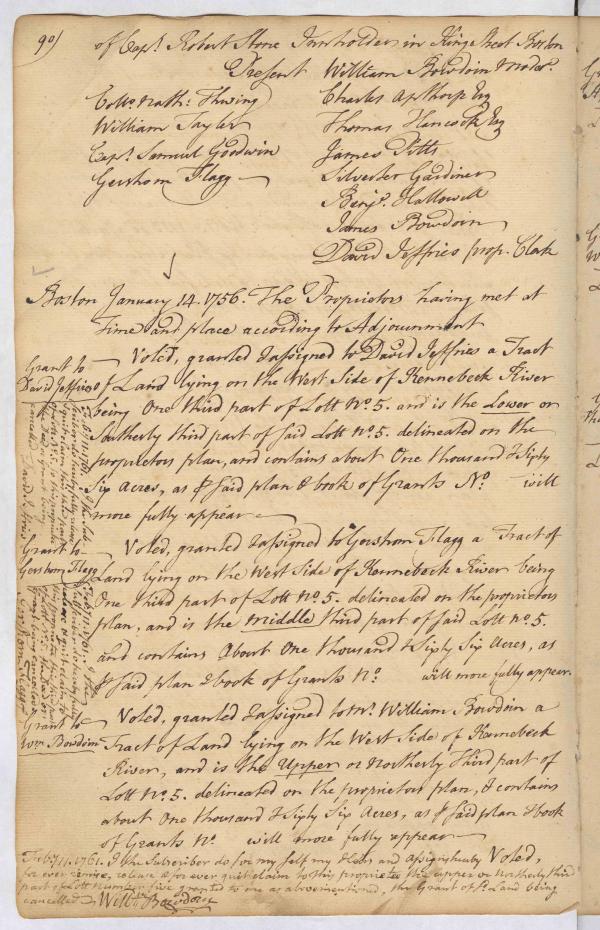 90/
of Capt. Robert Stone Innholder in King Street Boston
Present William Bowdoin Moder.
Collo. Nath. Thwing
William Taylor
Capt. Samuel Goodwin
Gershom Flagg
Charles Apthorp Esq
Thomas Hancock Esq
James Pitts
Silvester Gardiner
Benja. Hallowell
James Bowdoin
David Jeffries prop. Clerk
Boston January 14. 1756. The Proprietors having met at
time and place according to Adjournment
Grant to
David Jeffries
Voted, granted & assigned to David Jeffries a Tract
of Land lying on the West Side of Kennebeck River
being One third part of Lott No. 5. and is the Lower or
Southerly third part of said Lott No. 5. delineated on the
proprietors plan, and contains about One thousand & Sixty
Six Acres, as ⅌ said plan & book of Grants No. will
more fully appear
Grant to
Gershom Flagg
Voted, granted & assigned to Gershom Flagg a Tract of
Land lying on the West Side of Kennebeck River being
One third part of Lott No. 5. delineated on the proprietors
plan, and is the middle third part of said Lott No. 5.
and contains About One thousand & Sixty Six Acres, as
⅌ said plan & book of Grants No. will more fully appear.
Grant to
Wm. Bowdoin
Voted, granted & assigned to Mr. William Bowdoin a
Tract of Land lying on the West Side of Kennebeck
River, and is the Upper or Northerly third part of
Lott No. 5. delineated on the proprietors plan, & contains
about One thousand & Sixty Six Acres, as ⅌ said plan & book
of Grants No. will more fully appear
Voted,
Feb. 11. 1761. I the Subscriber do for my self my Heirs and Assigns hereby
for ever remise, release & for ever quit claim to this proprietee the upper or Northerly third
part of Lott number five granted to me as abovementioned, the Grant of sd. Land being
cancelled Willm. Bowdoin